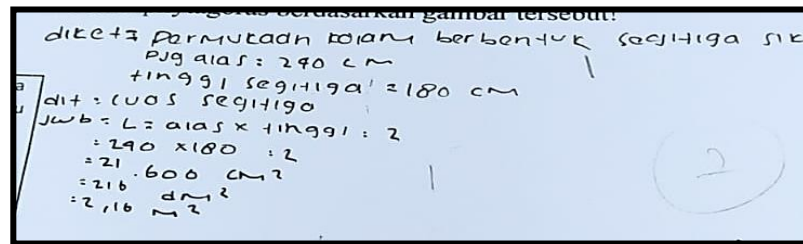 pythagoras berdasarkan gambar tersebut!
diket = Permukaan kolam berbentuk segitiga sik
Pjg alas = 240 cm
tinggi segitiga = 180 cm
dit = luas segitiga
Jwb = L = alas x tinggi : 2
= 240 x 180 : 2
= 21.600 cm²
= 216 dm²
= 2,16 m²
2